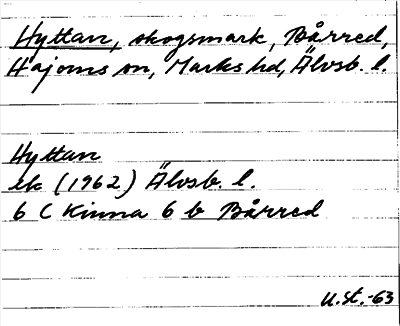 Hyttan, skogsmark, Bårred,
Hajoms sn, Marks hd, Älvsb. l.
Hyttan
ek (1962) Älvsb. l.
6 C Kinna 6 b Bårred
U.St.-63